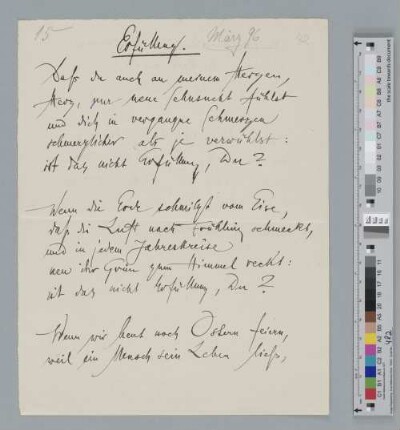 15 Erfüllung. März 96
Dass du auch an meinem Herzen,
Herz, nur neue Sehnsucht fühlst
und dich in vergangne Schmerzen
schmerzlicher als je verwühlst:
ist das nicht Erfüllung, Du?
Wenn die Erde schmilzt vom Eise,
dass die Luft nach Frühling schmeckt,
und in jedem Jahreskreise
neu ihr Grün zum Himmel reckt:
ist das nicht Erfüllung, Du?
Wenn wir heut noch Ostern feiern,
weil ein Mensch sein Leben liess,